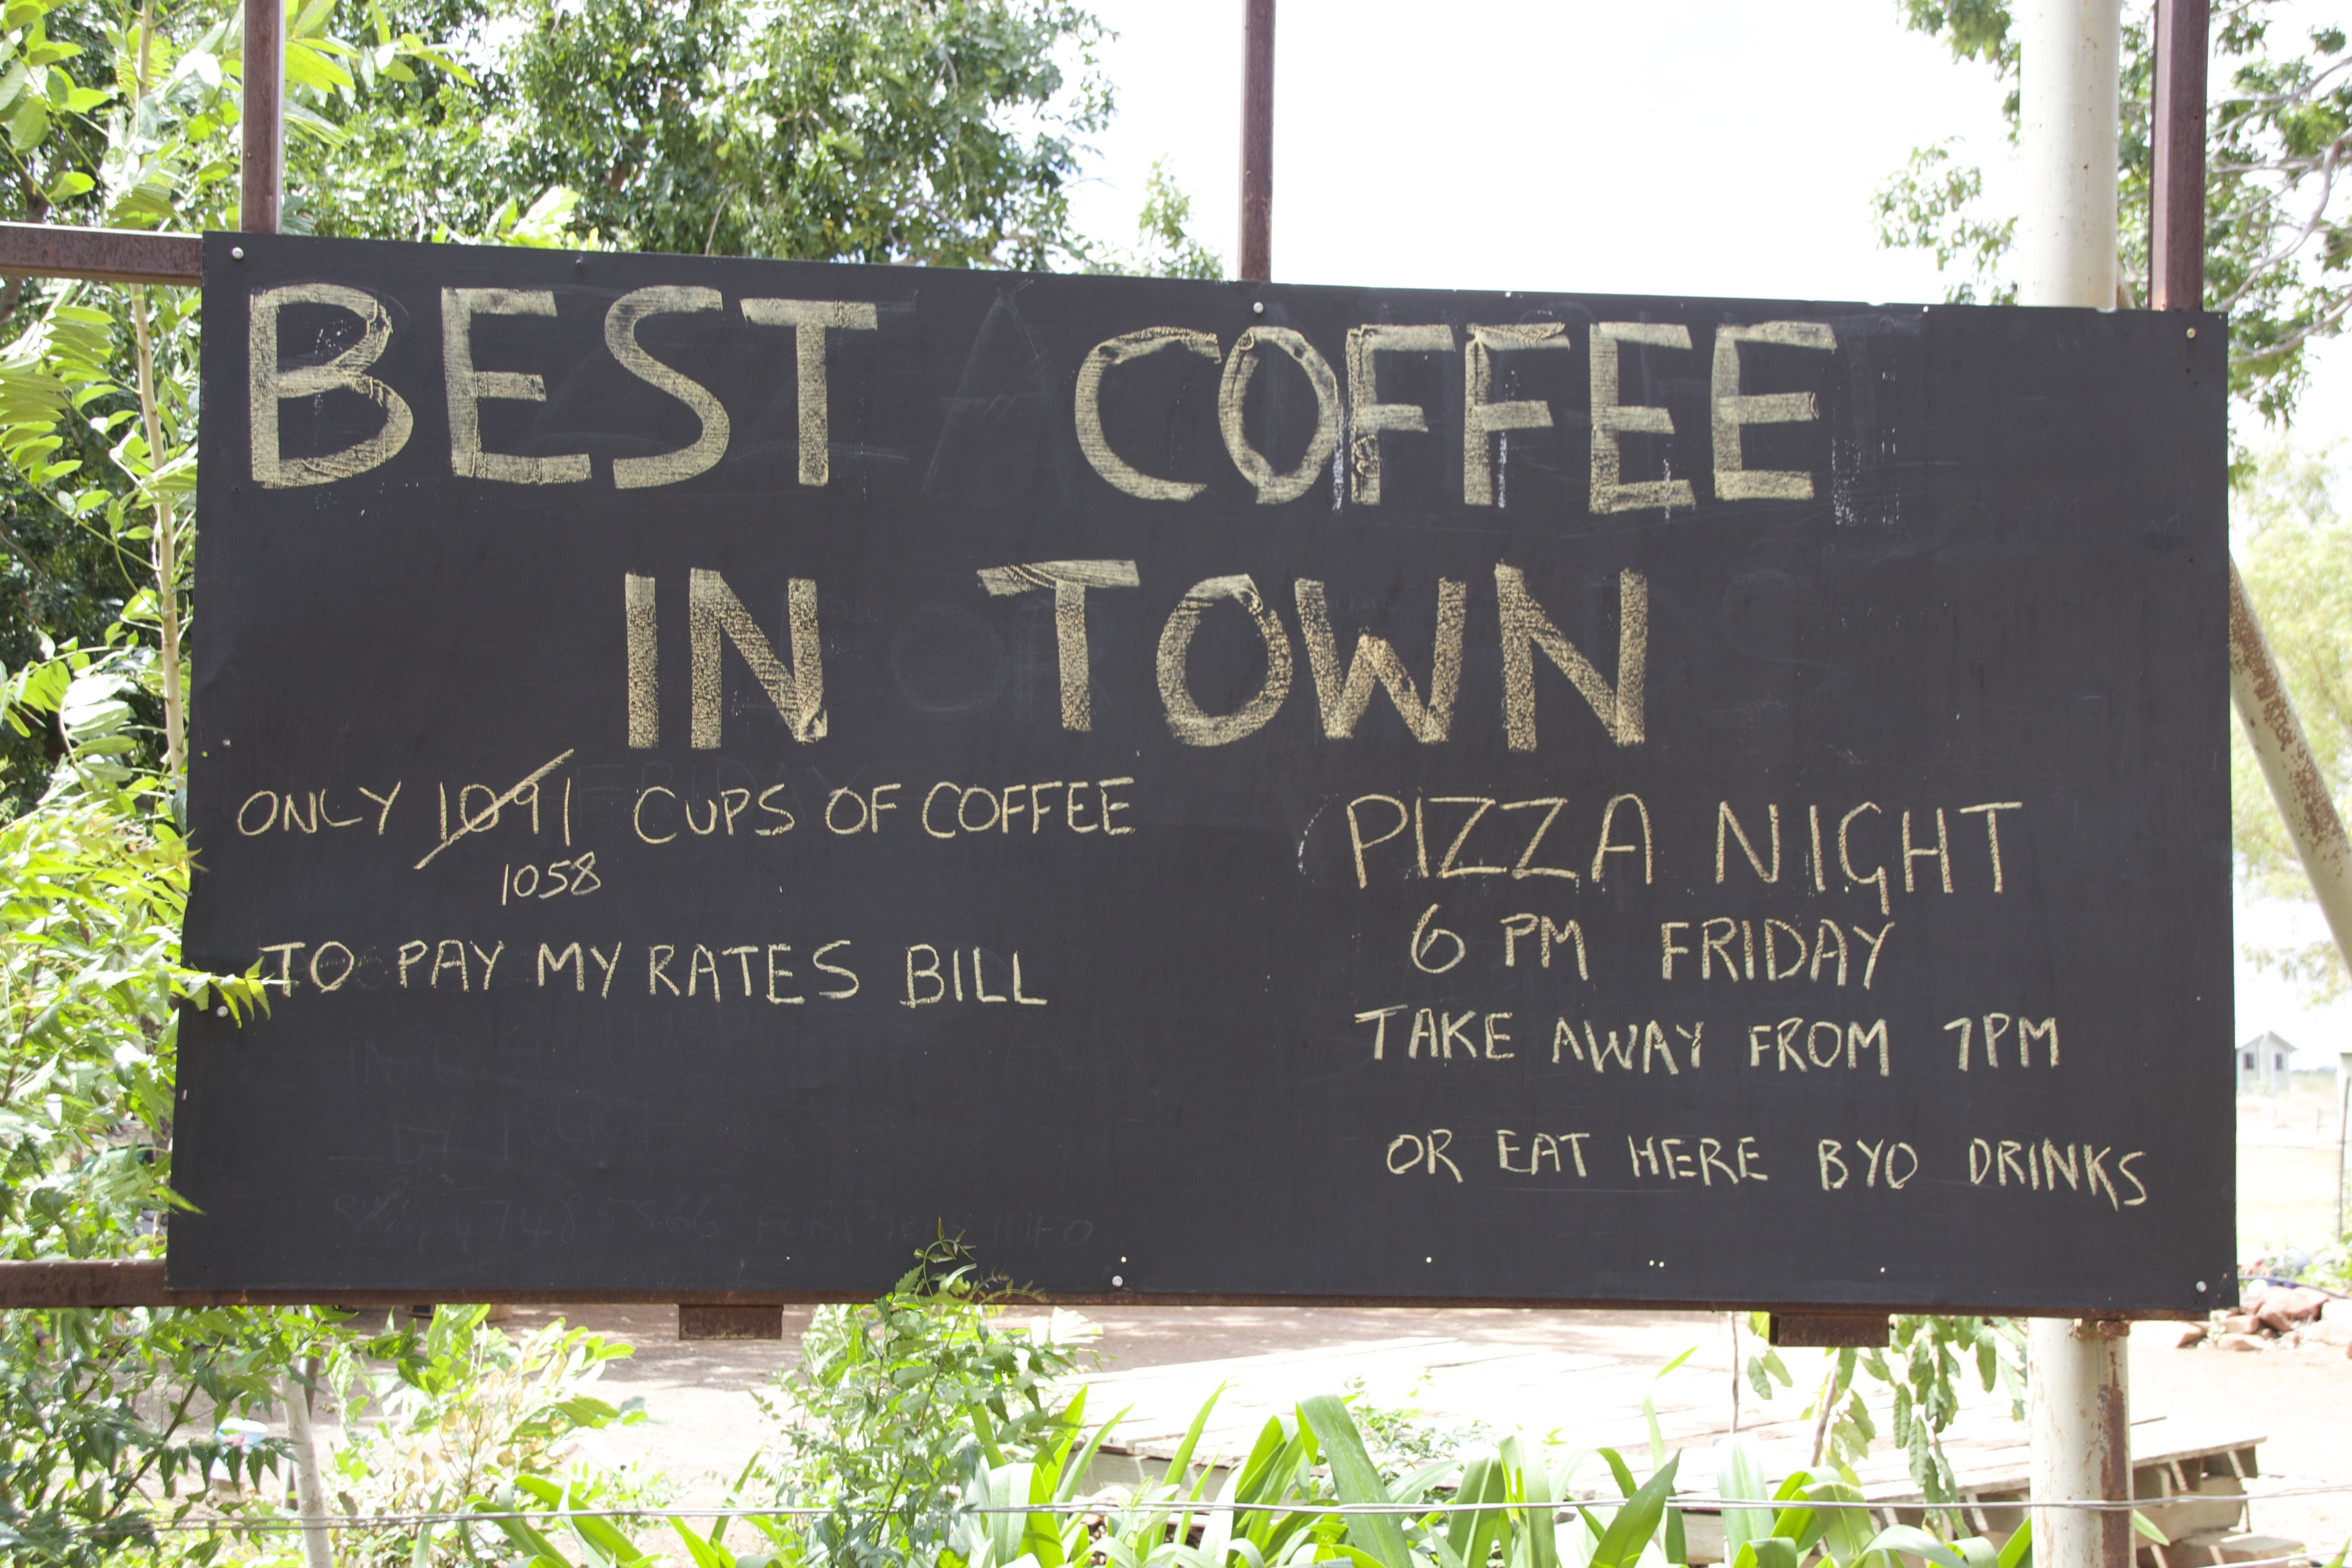 BEST COFFEE
IN TOWN
ONLY 1091 CUPS OF COFFEE
1058
TO PAY MY RATES BILL
PIZZA NIGHT
6 PM FRIDAY
TAKE AWAY FROM 7PM
OR EAT HERE BYO DRINKS